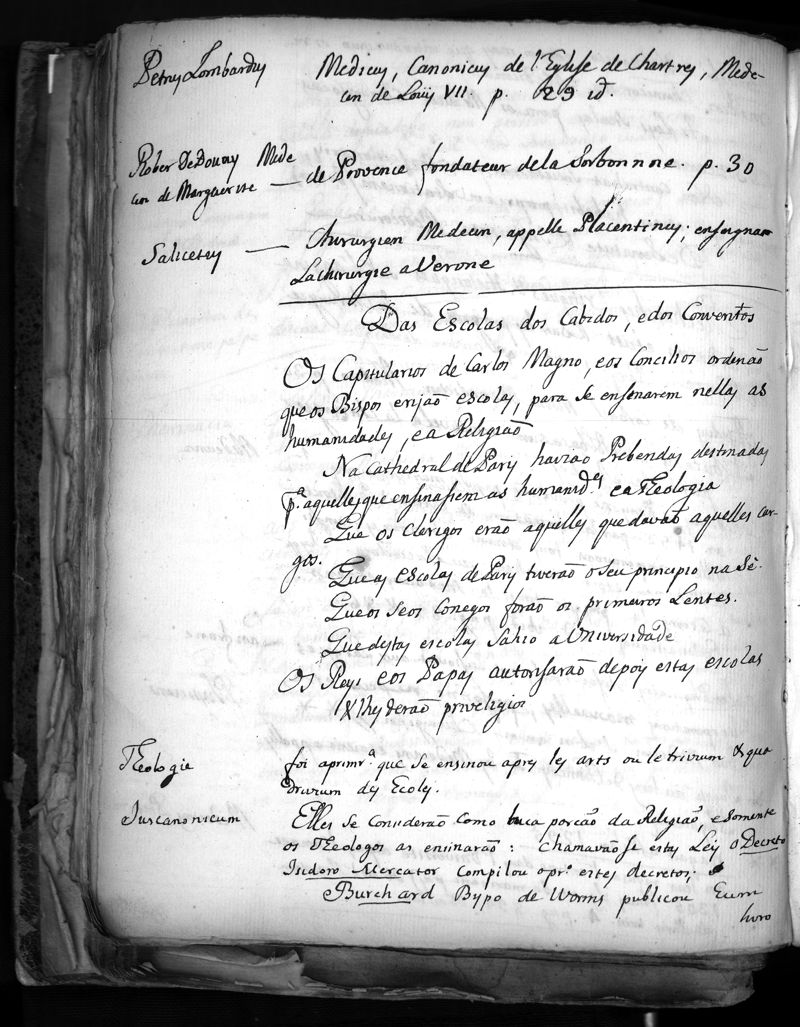 Petrus Lombardus Medicus, Canonicus de l'Eglise de Chartres, Mede-
cin de Louis VII. p. 29 id.
Rober De Douay Mede
cin de Marguerite — de Provence fondateur dela Sorbonne. p. 30
Salicetus — Chirurgien Medecin, appelle Placentinus; enseigna
La chirurgie a Verone
Das Escolas dos Cabidos, e dos Conventos
Os Capitularios de Carlos Magno, eos Concilios ordenão
que os Bispos erijão escolas, para se ensinarem nellas as
humanidades, e a Religião
Na Cathedral de Paris havião Prebendas destinadas
pª. aquelles que ensinassem as humanid.es e a Theologia
Que os Clerigos erão aquelles que davão aquelles car-
gos.
Que as escolas de Paris tiverão o seu principio na Sé.
Que os seos Conegos forão os primeiros Lentes.
Que destas escolas sahio a Universidade
Os Reys e os Papas autorisarão depois estas escolas
& lhes derão privelegios
Theologie foi a primrª. que se ensinou apres les arts ou le trivium & qua
drivium des Ecoles.
Jus canonicum Elles se considerão como huca porcão da Religião, e somente
os Theologos as ensinarão: chamavão se estas Leis o Decreto
Isidoro Mercator compilou o prº. estes decretos;
Burchard Bispo de Worms publicou Eum
livro